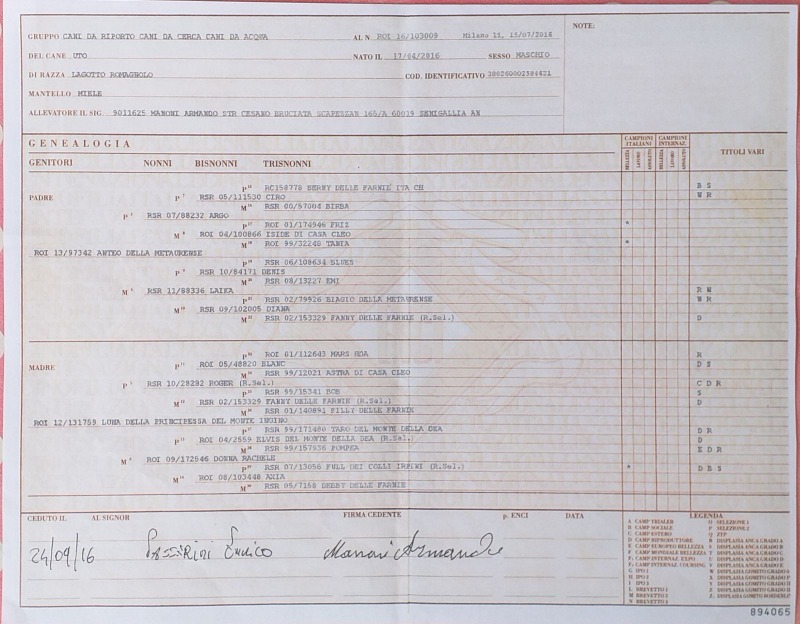 GRUPPO CANI DA RIPORTO CANI DA CERCA CANI DA ACQUA AL N. ROI 16/103009 Milano li, 15/07/2016 NOTE:
DEL CANE UTO NATO IL 17/04/2016 SESSO MASCHIO
DI RAZZA LAGOTTO ROMAGNOLO COD. IDENTIFICATIVO 380260002584421
MANTELLO MIELE
ALLEVATORE IL SIG 9011625 MANONI ARMANDO STR CESANO BRUCIATA SCAPEZZAN 165/A 60019 SENIGALLIA AN
GENEALOGIA CAMPIONI ITALIANI CAMPIONI INTERNAZ. TITOLI VARI
GENITORI NONNI BISNONNI TRISNONNI BELLEZZA LAVORO ASSOLUTO BELLEZZA LAVORO ASSOLUTO
RC158778 BERRY DELLE FARNIE ITA CH B S
PADRE RSR 05/111530 CIRO W R
RSR 00/57004 BIRBA
RSR 07/88232 ARGO
ROI 01/174946 FRIZ *
ROI 04/100866 ISIDE DI CASA CLEO
ROI 99/32248 TANIA *
ROI 13/97342 ANTEO DELLA METAURENSE
RSR 06/108634 BLUES
RSR 10/84171 DENIS
RSR 08/13227 EMI
RSR 11/88336 LAIKA R W
RSR 02/79926 BIAGIO DELLA METAURENSE W R
RSR 09/102005 DIANA
RSR 02/153329 FANNY DELLE FARNIE (R.Sel.) D
ROI 01/112643 MARS HOA R
MADRE ROI 05/48820 BLANC D S
RSR 99/12021 ASTRA DI CASA CLEO
RSR 10/28282 ROGER (R.Sel.) C D R
RSR 99/15341 BOB S
RSR 02/153329 FANNY DELLE FARNIE (R.Sel.) D
RSR 01/140891 FILLY DELLE FARNIE
ROI 12/131759 LUNA DELLA PRINCIPESSA DEL MONTE INGINO
RSR 99/171480 TARO DEL MONTE DELLA DEA D R
ROI 04/2559 ELVIS DEL MONTE DELLA DEA (R.Sel.) D
RSR 99/157536 POMPEA E D R
ROI 09/172546 DONNA RACHELE
RSR 07/13056 FULL DEI COLLI IRPINI (R.Sel.) * D B S
ROI 08/103448 AXIA
RSR 05/7158 DEBBY DELLE FARNIE
CEDUTO IL AL SIGNOR FIRMA CEDENTE p. ENCI DATA LEGENDA
24/09/16 Enrico Manoni Armando
A CAMP TRIALER
B CAMP SOCIALE
C CAMP ESTERO
D CAMP RIPRODUTTORE
E CAMP EUROPEO BELLEZZA
F CAMP MONDIALE BELLEZZA
G IPO 1
H IPO 2
I IPO 3
L BREVETTO 1
M BREVETTO 2
N BREVETTO 3
O SELEZIONE 1
P SELEZIONE 2
Q ZTP
R DISPLASIA ANCA GRADO A
S DISPLASIA ANCA GRADO B
T DISPLASIA ANCA GRADO C
U DISPLASIA ANCA GRADO D
V DISPLASIA ANCA GRADO E
894065